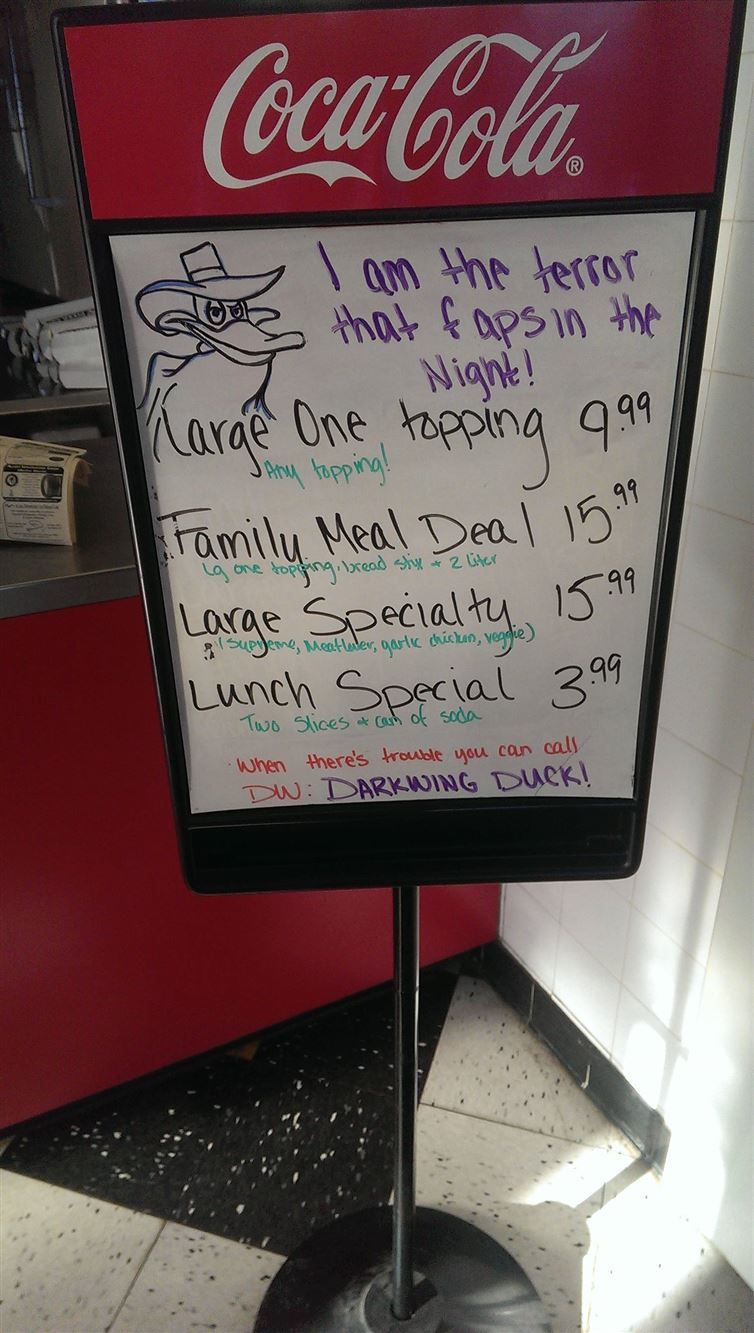 Coca-Cola®
I am the terror
that f aps in the
Night!
Large One topping 9.99
Any topping!
Family Meal Deal 15.99
Lg one topping, bread stix + 2 liter
Large Specialty 15.99
(Supreme, Meatlover, garlic chicken, veggie)
Lunch Special 3.99
Two Slices + can of soda
When there's trouble you can call
DW: DARKWING DUCK!